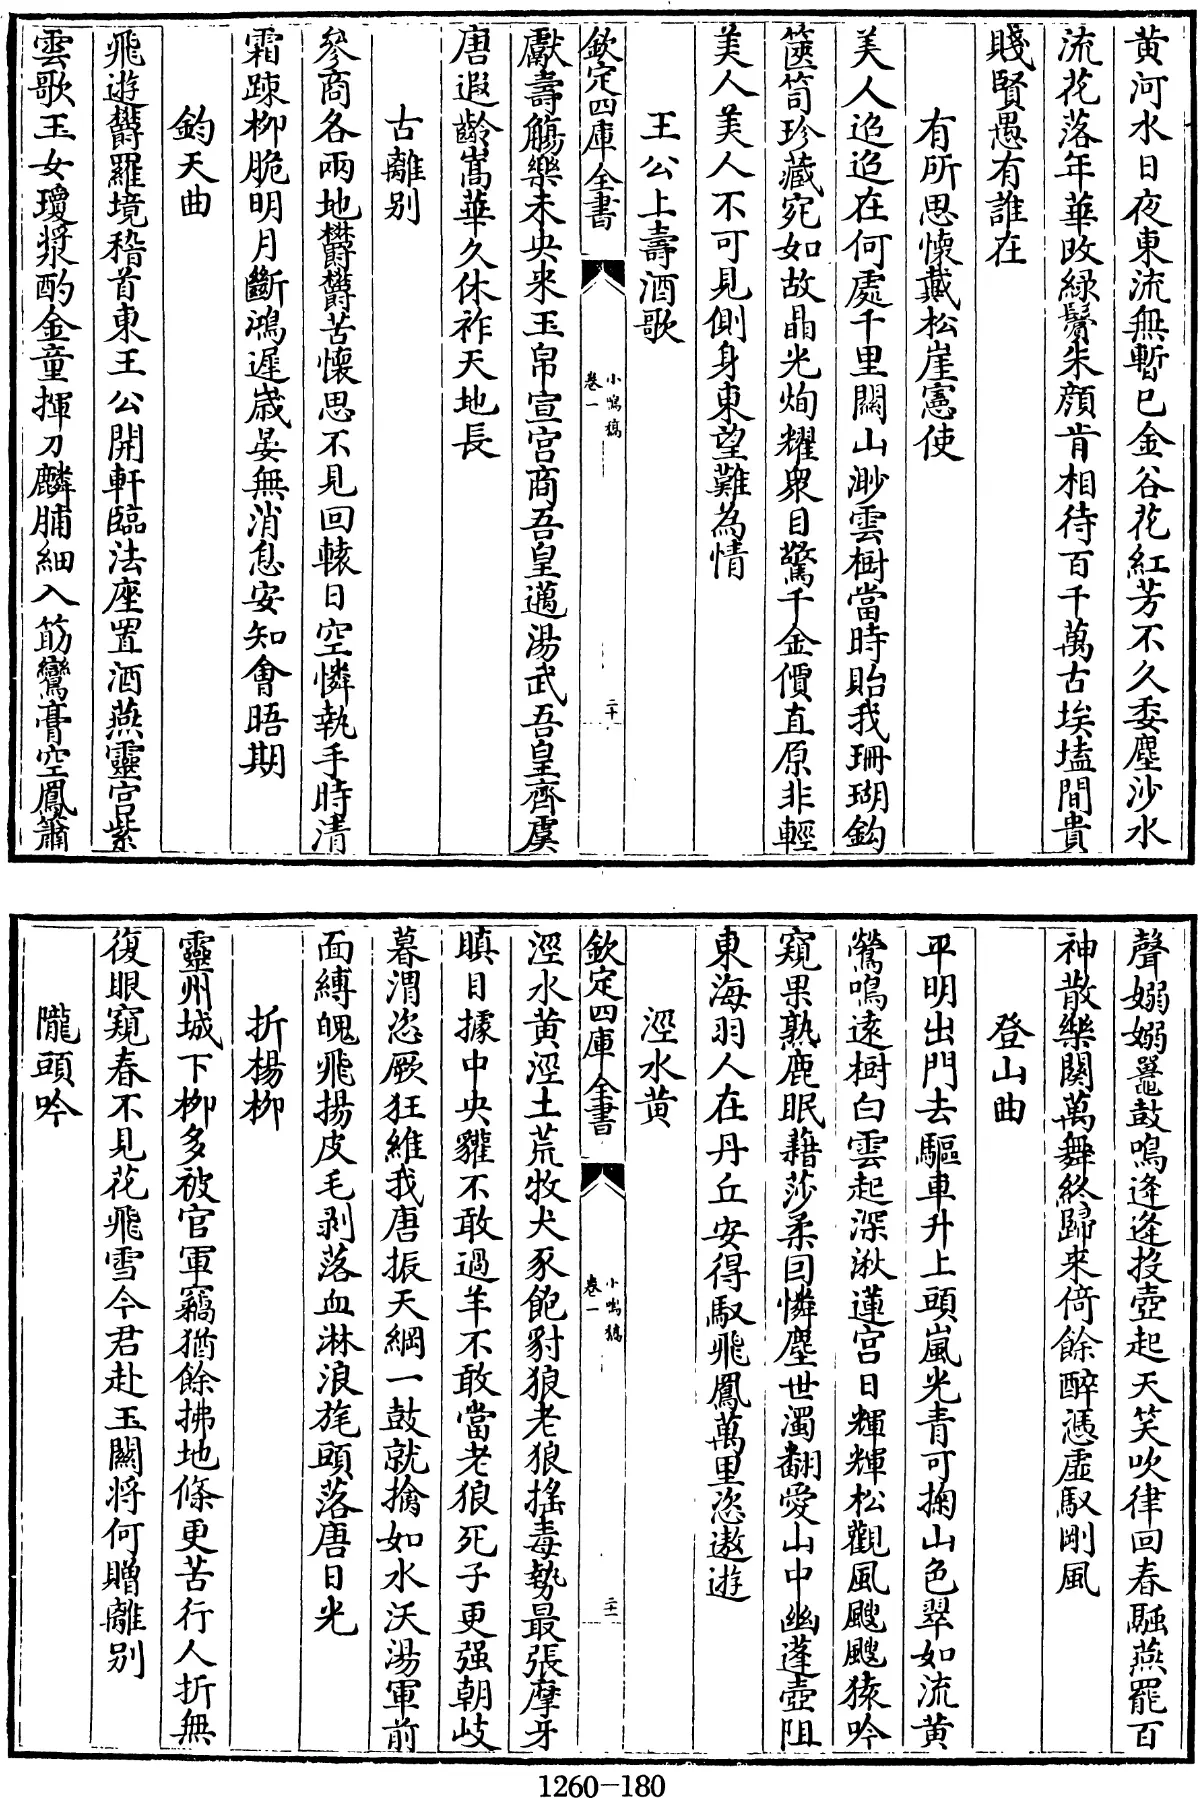 黄河水日夜東流無暫已金谷花紅芳不久委塵沙水
流花落年華改緑鬢朱顔肯相待百千萬古埃壒間貴
賤賢愚有誰在
有所思懷戴松崖憲使
美人迢迢在何處千里關山渺雲樹當時貽我珊瑚鈎
篋笥珍藏宛如故晶光焗耀衆目驚千金價直原非輕
美人美人不可見側身東望難為情
王公上壽酒歌
欽定四庫全書
小鳴稿
卷一
二十
獻壽觴樂未央来玉帛宣宫商吾皇邁湯武吾皇齊虞
唐遐齡嵩華久休祚天地長
古離别
參商各兩地欝欝苦懷思不見回轅日空憐執手時清
霜踈栁脆明月斷鴻遲嵗晏無消息安知會晤期
鈞天曲
飛遊欝羅境稽首東王公開軒臨法座置酒燕靈宫紫
雲歌玉女瓊漿酌金童揮刀麟脯細入筯鸞膏空鳳簫
聲嫋嫋鼉鼓鳴逄逄投壺起天笑吹律回春融燕罷百
神散樂闋萬舞終歸来倚餘醉憑虚馭剛風
登山曲
平明出門去驅車升上頭嵐光青可掬山色翠如流黄
鶯鳴逺樹白雲起深湫蓮宫日輝輝松觀風颼颼猿吟
窺果熟鹿眠藉莎柔囘憐塵世濁翻愛山中幽蓬壺阻
東海羽人在丹丘安得馭飛鳳萬里恣遨遊
涇水黄
欽定四庫全書
小鳴稿
卷一
二十一
涇水黄涇土荒牧犬豕飽豺狼老狼揺毒勢最張摩牙
瞋目據中央貛不敢過羊不敢當老狼死子更强朝岐
暮渭恣厥狂維我唐振天綱一鼓就擒如水沃湯軍前
面縛魄飛揚皮毛剥落血淋浪旄頭落唐日光
折楊栁
靈州城下栁多被官軍竊猶餘拂地條更苦行人折無
復眼窺春不見花飛雪今君赴玉闗将何贈離别
隴頭吟
1260-180